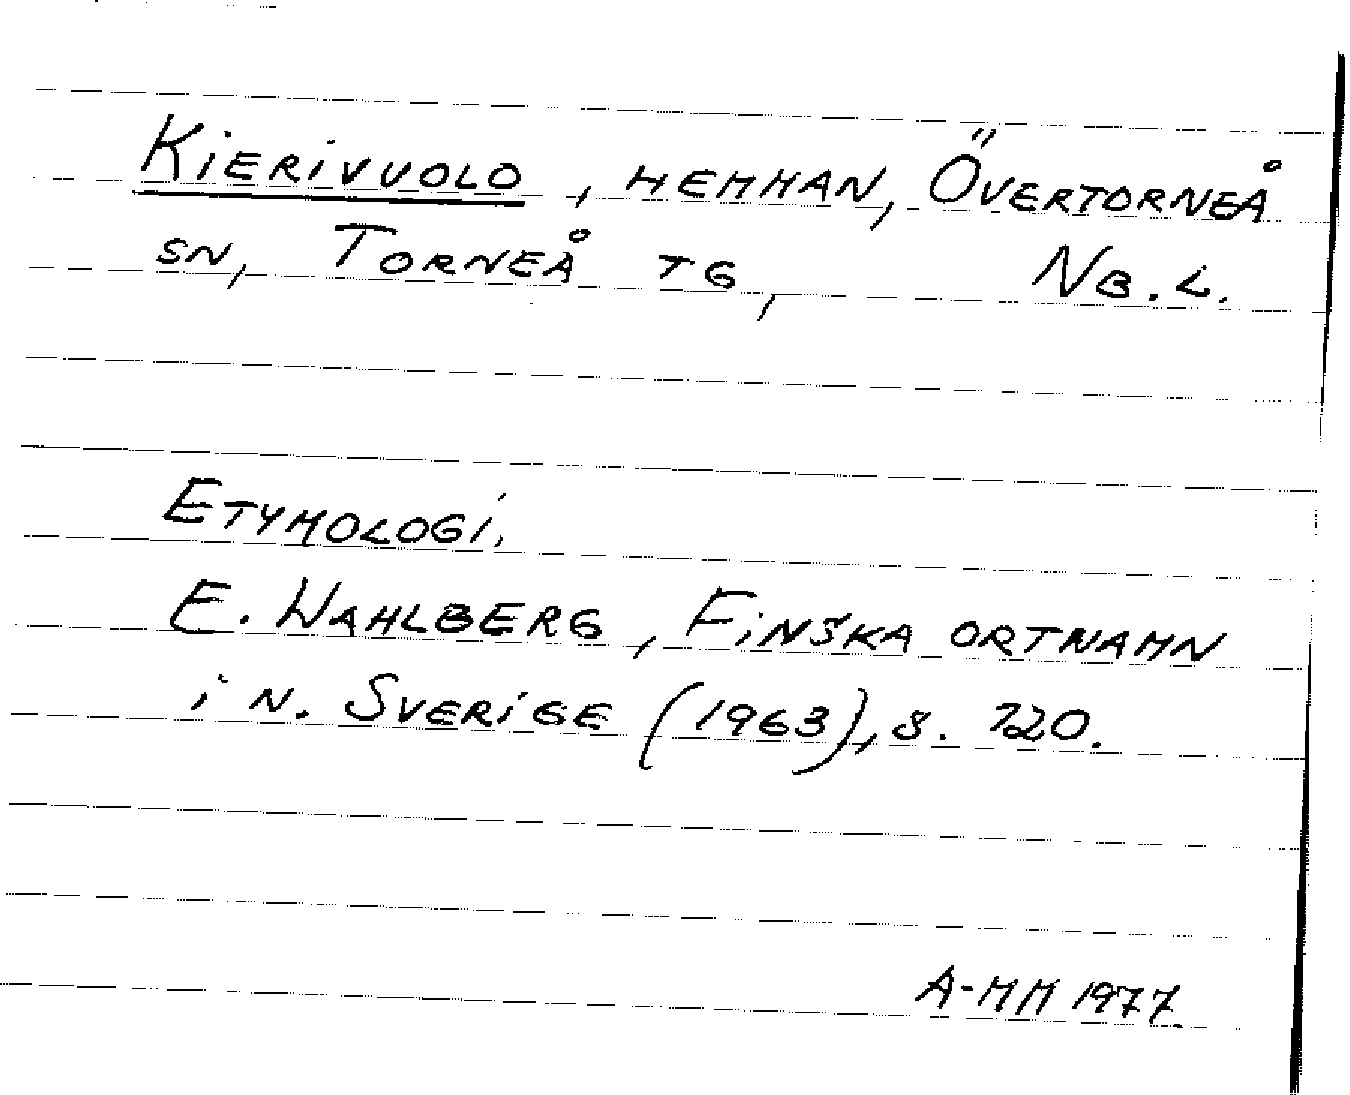 Kierivuolo, hemman, Övertorneå
sn, Torneå tg, Nb.l.
Etymologi.
E. Wahlberg, Finska ortnamn
i n. Sverige (1963), s. 720.
A-MM 1977.